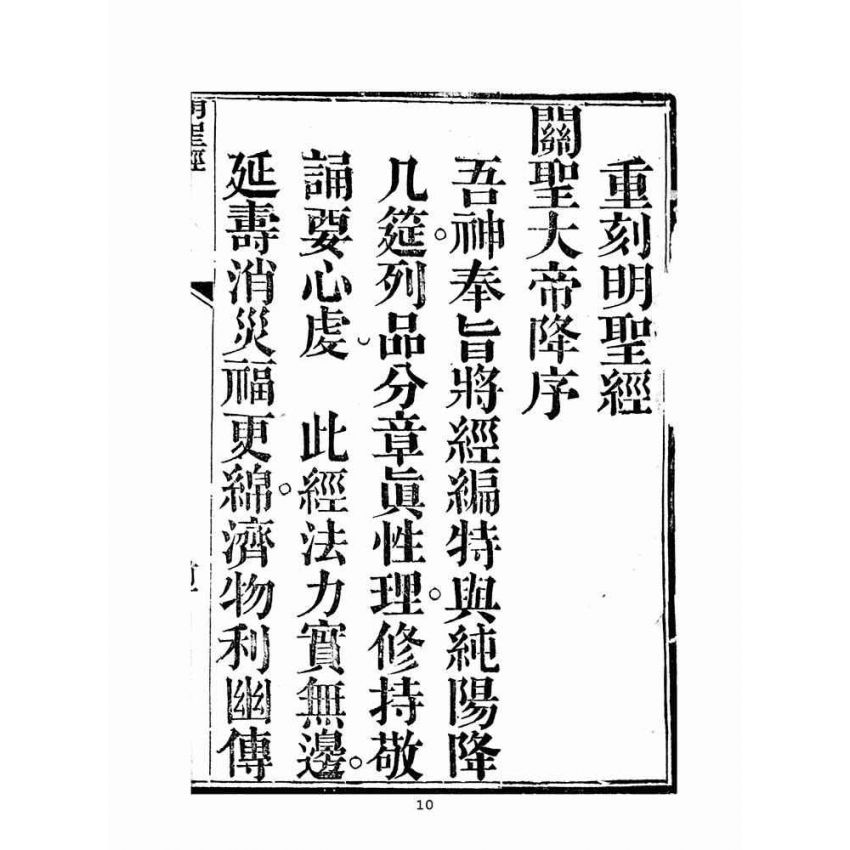 重刻明聖經
關聖大帝降序
吾神奉旨將經編特與純陽降
几筵。列品分章眞性理。修持敬
誦要心虔　此經法力實無邊。
延壽消災福更綿。濟物利幽傳
明聖經
10